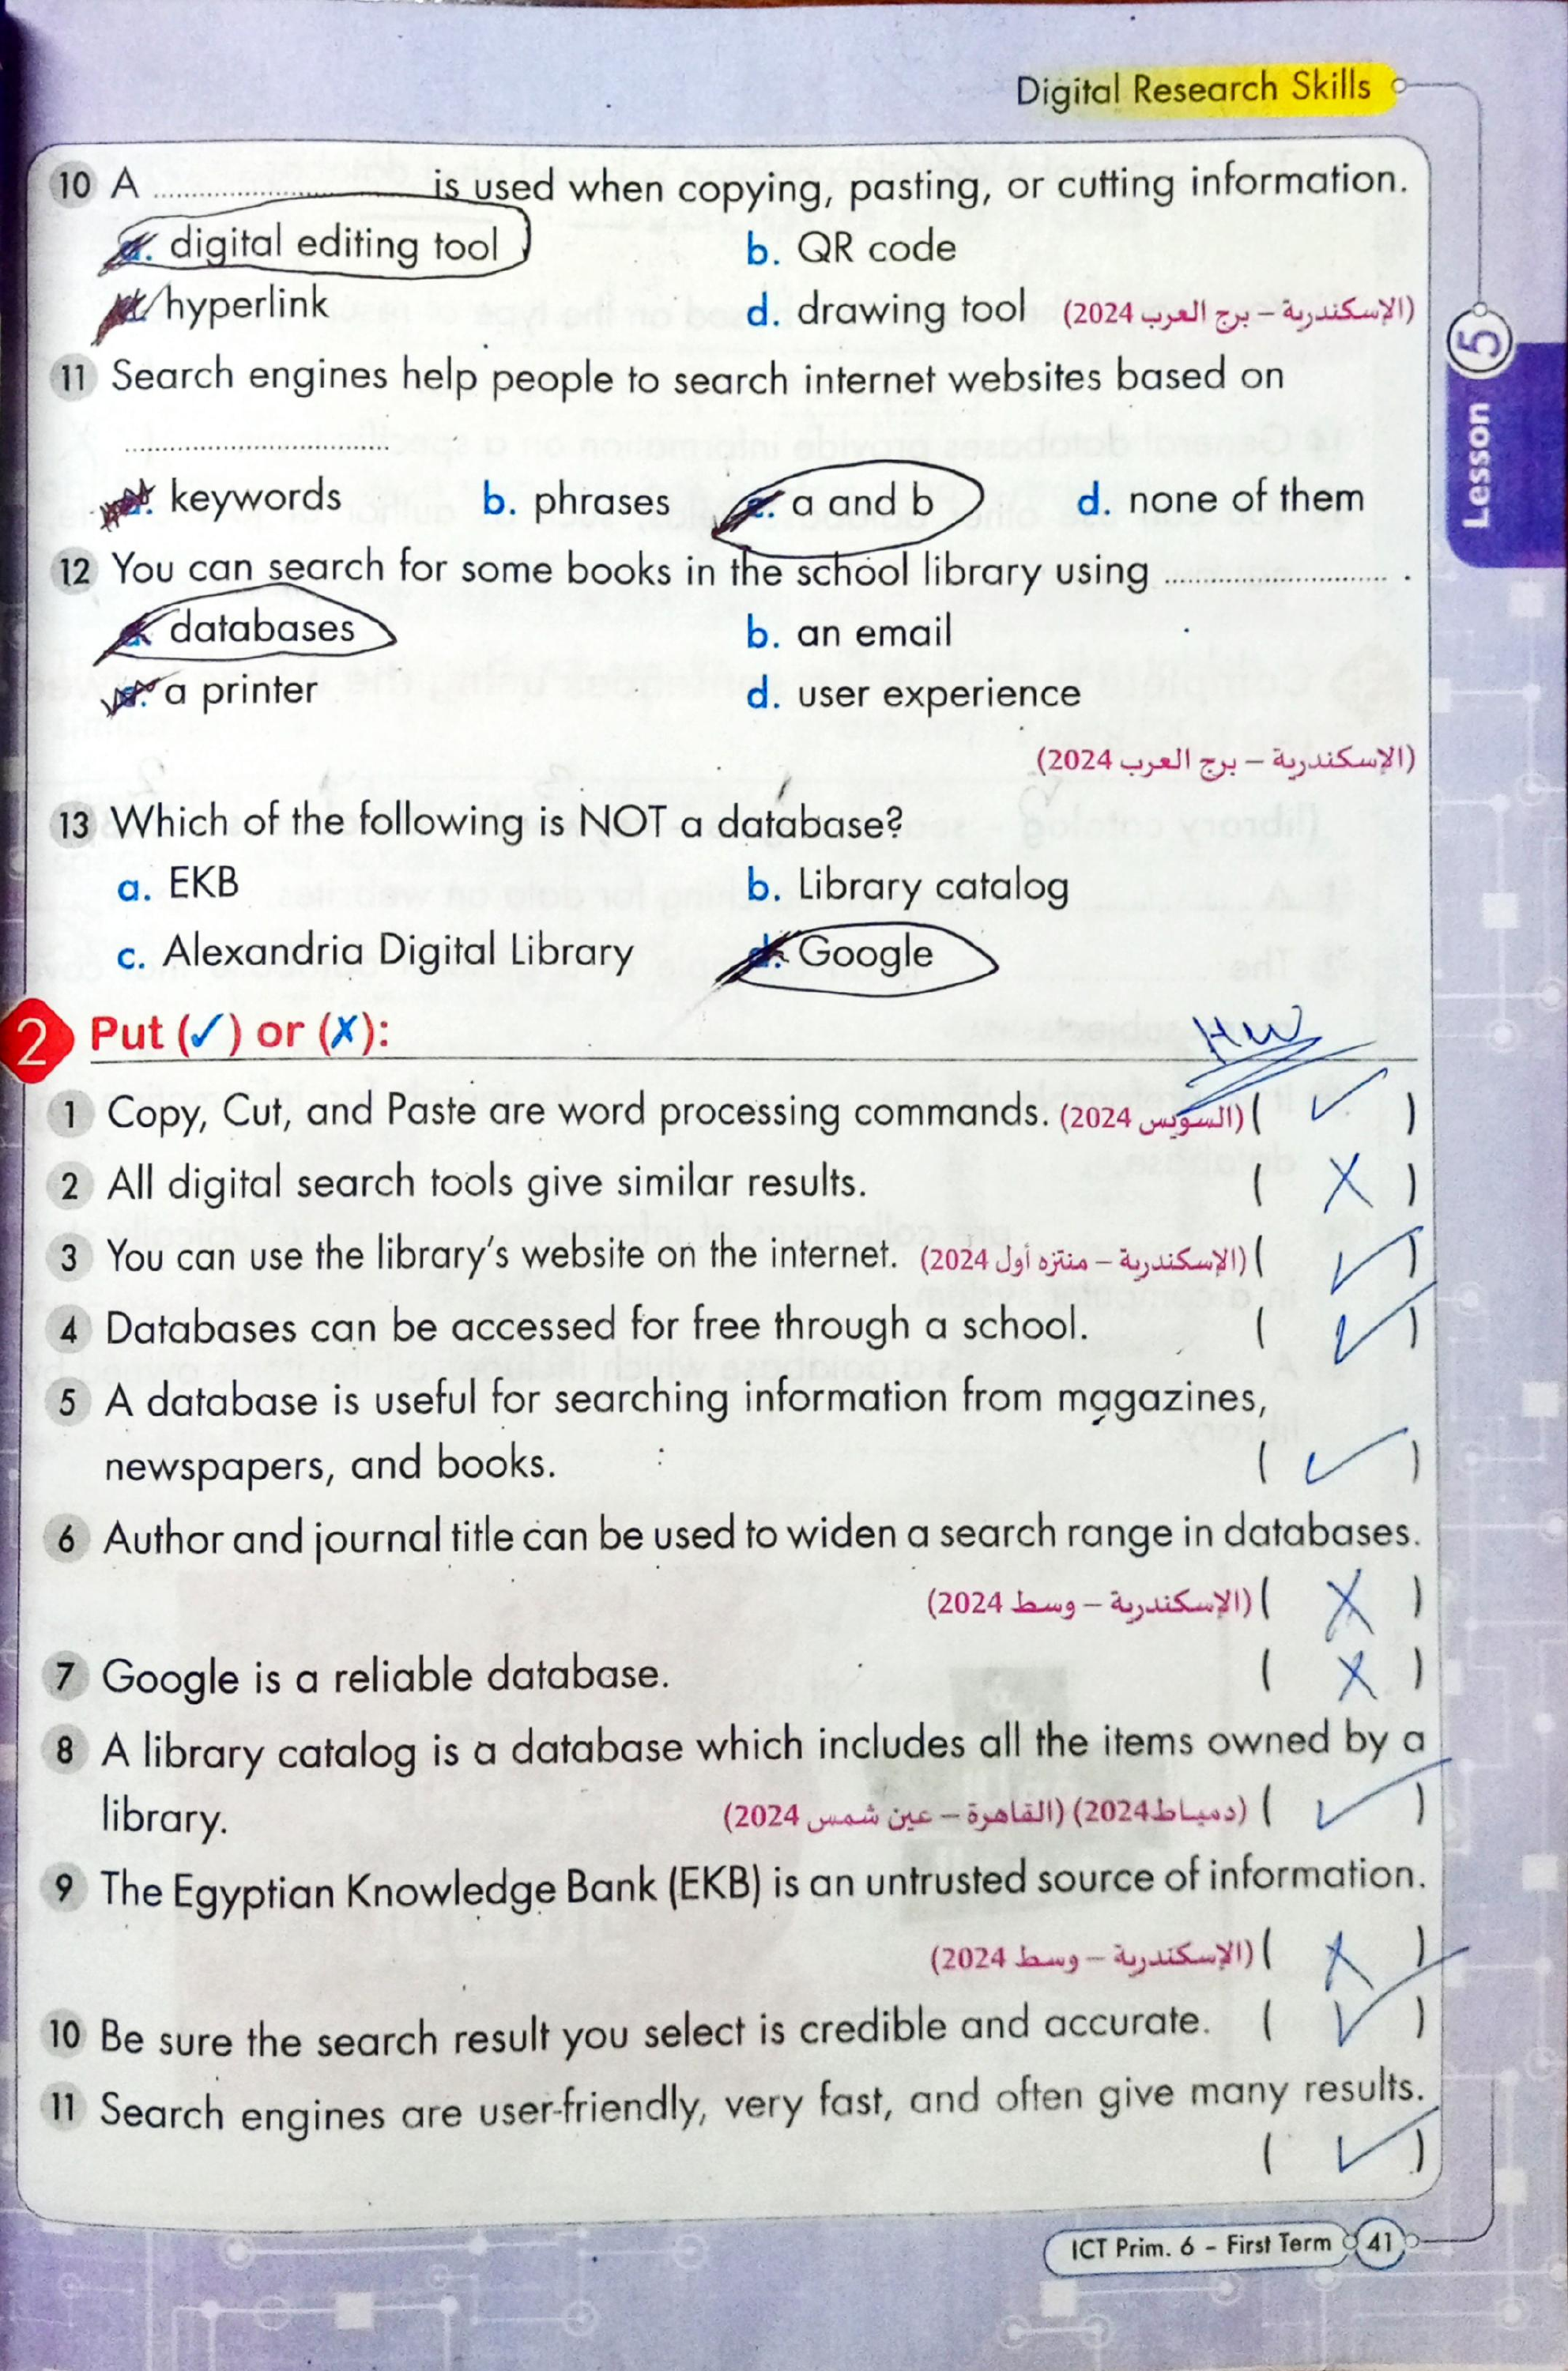 Digital Research Skills
10 A .................... is used when copying, pasting, or cutting information.
a. digital editing tool b. QR code
c. hyperlink d. drawing tool (الإسكندرية – برج العرب 2024)
11 Search engines help people to search internet websites based on
....................
a. keywords b. phrases c. a and b d. none of them
12 You can search for some books in the school library using .................... .
a. databases b. an email
c. a printer d. user experience
(الإسكندرية – برج العرب 2024)
13 Which of the following is NOT a database?
a. EKB b. Library catalog
c. Alexandria Digital Library d. Google
2 Put (✓) or (✗):
HW
1 Copy, Cut, and Paste are word processing commands. (السويس 2024) ( ✓ )
2 All digital search tools give similar results. ( X )
3 You can use the library's website on the internet. (الإسكندرية – منتزه أول 2024) ( ✓ )
4 Databases can be accessed for free through a school. ( ✓ )
5 A database is useful for searching information from magazines,
newspapers, and books. ( ✓ )
6 Author and journal title can be used to widen a search range in databases.
(الإسكندرية – وسط 2024) ( X )
7 Google is a reliable database. ( X )
8 A library catalog is a database which includes all the items owned by a
library. (دمياط 2024) (القاهرة – عين شمس 2024) ( ✓ )
9 The Egyptian Knowledge Bank (EKB) is an untrusted source of information.
(الإسكندرية – وسط 2024) ( X )
10 Be sure the search result you select is credible and accurate. ( ✓ )
11 Search engines are user-friendly, very fast, and often give many results.
( ✓ )
Lesson 5
ICT Prim. 6 - First Term 41